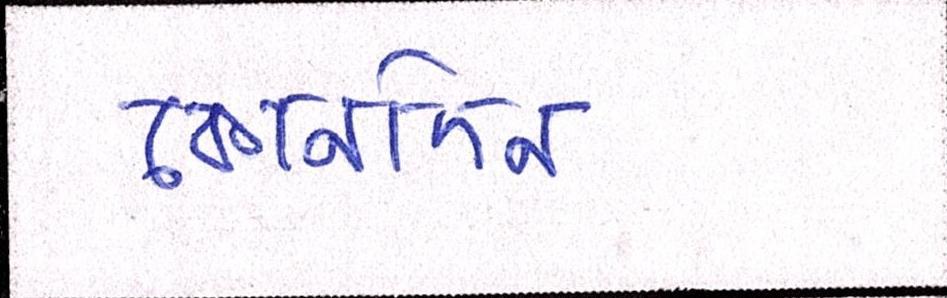 কোনদিন